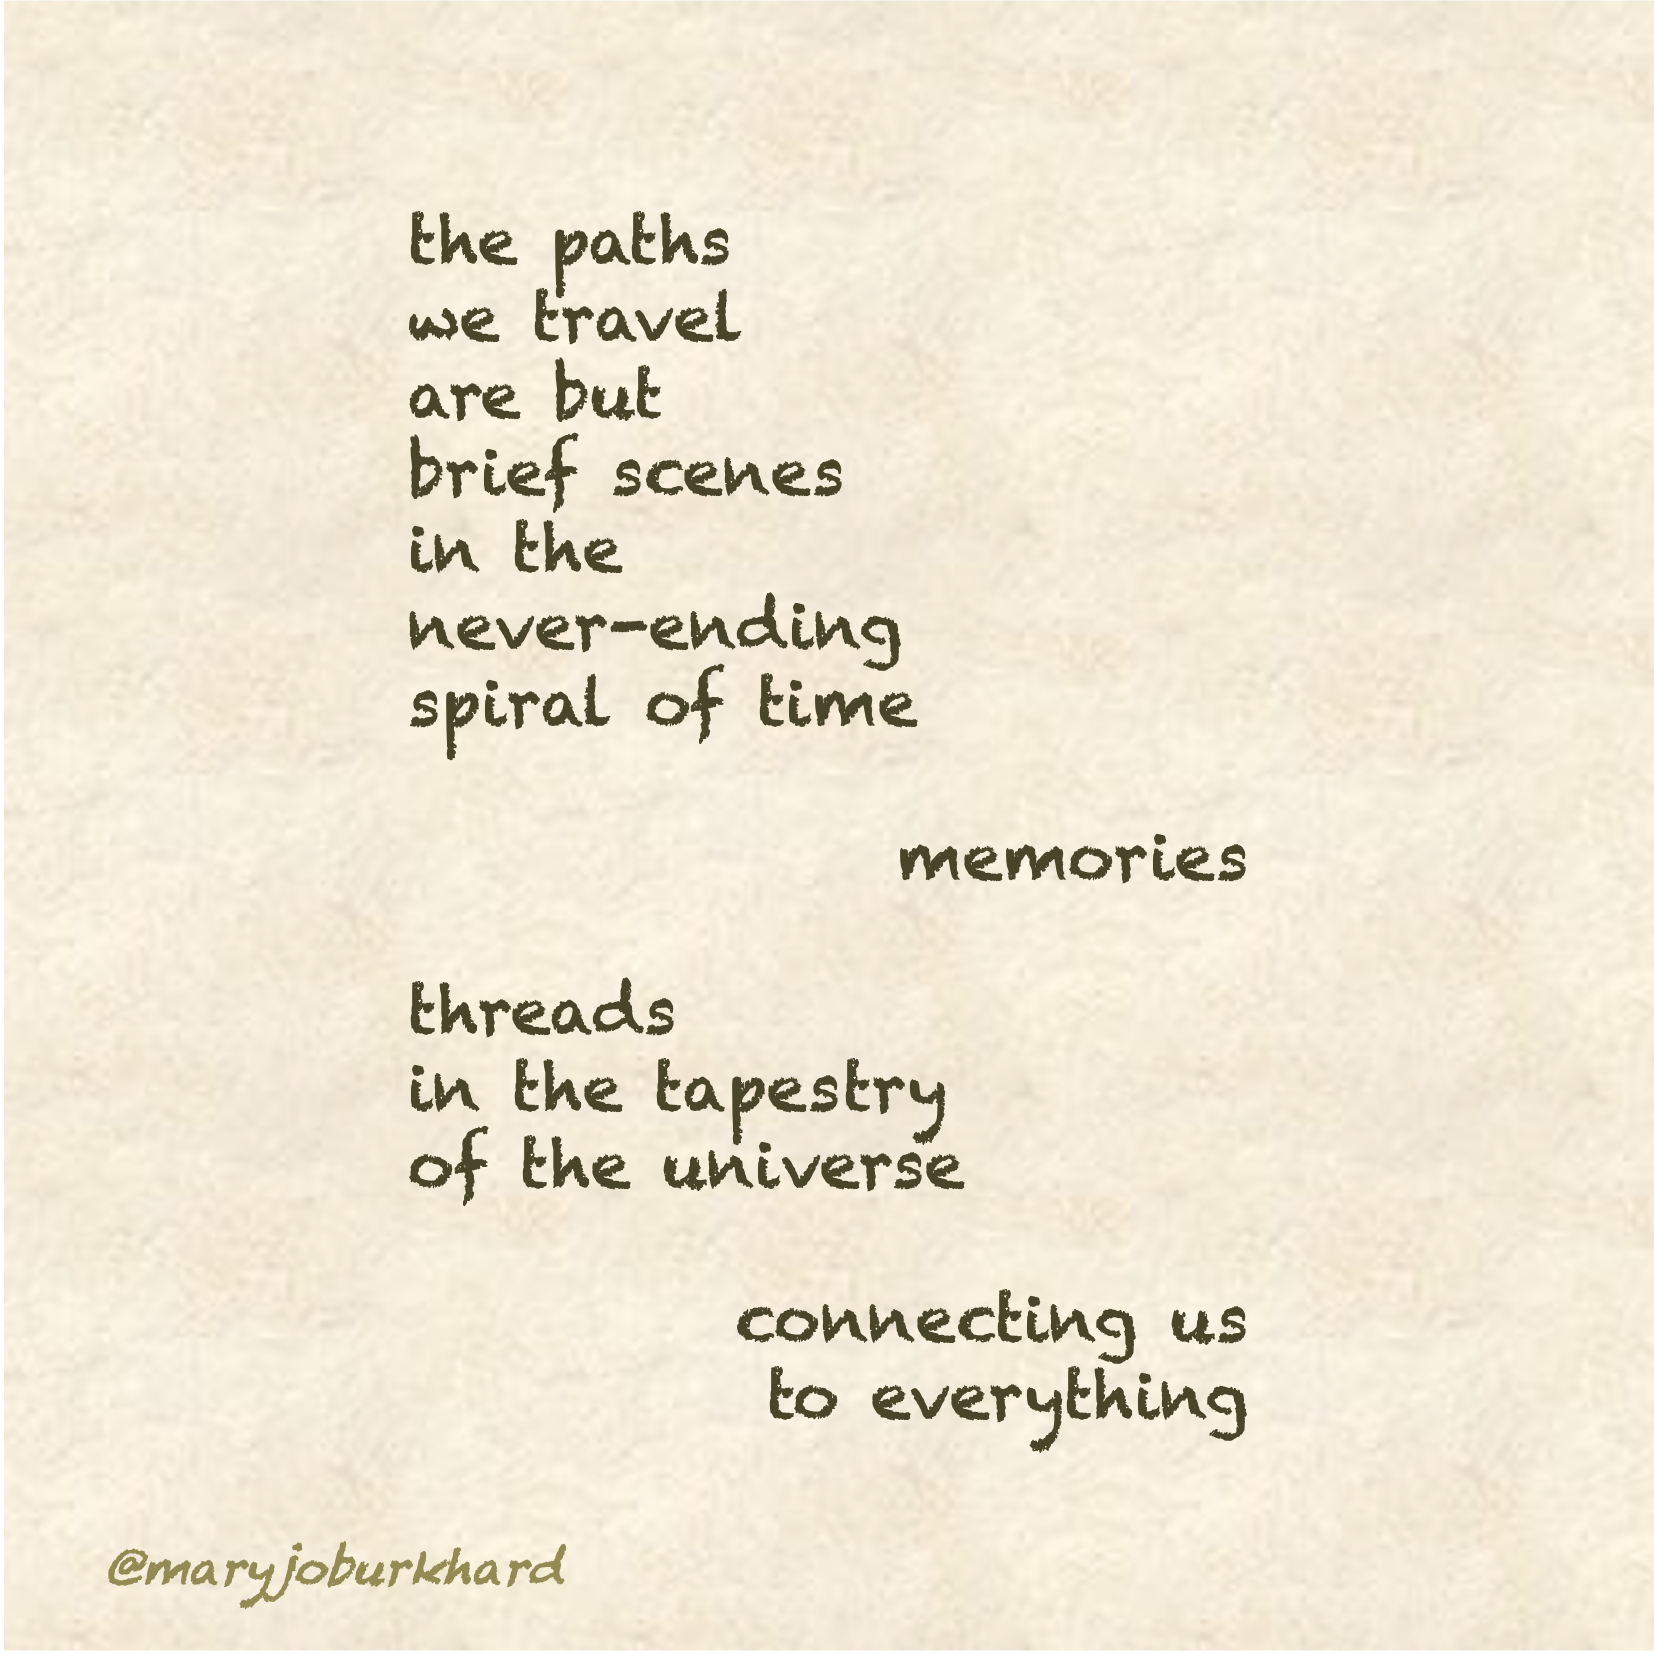 the paths
we travel
are but
brief scenes
in the
never-ending
spiral of time
memories
threads
in the tapestry
of the universe
connecting us
to everything
@maryjoburkhard